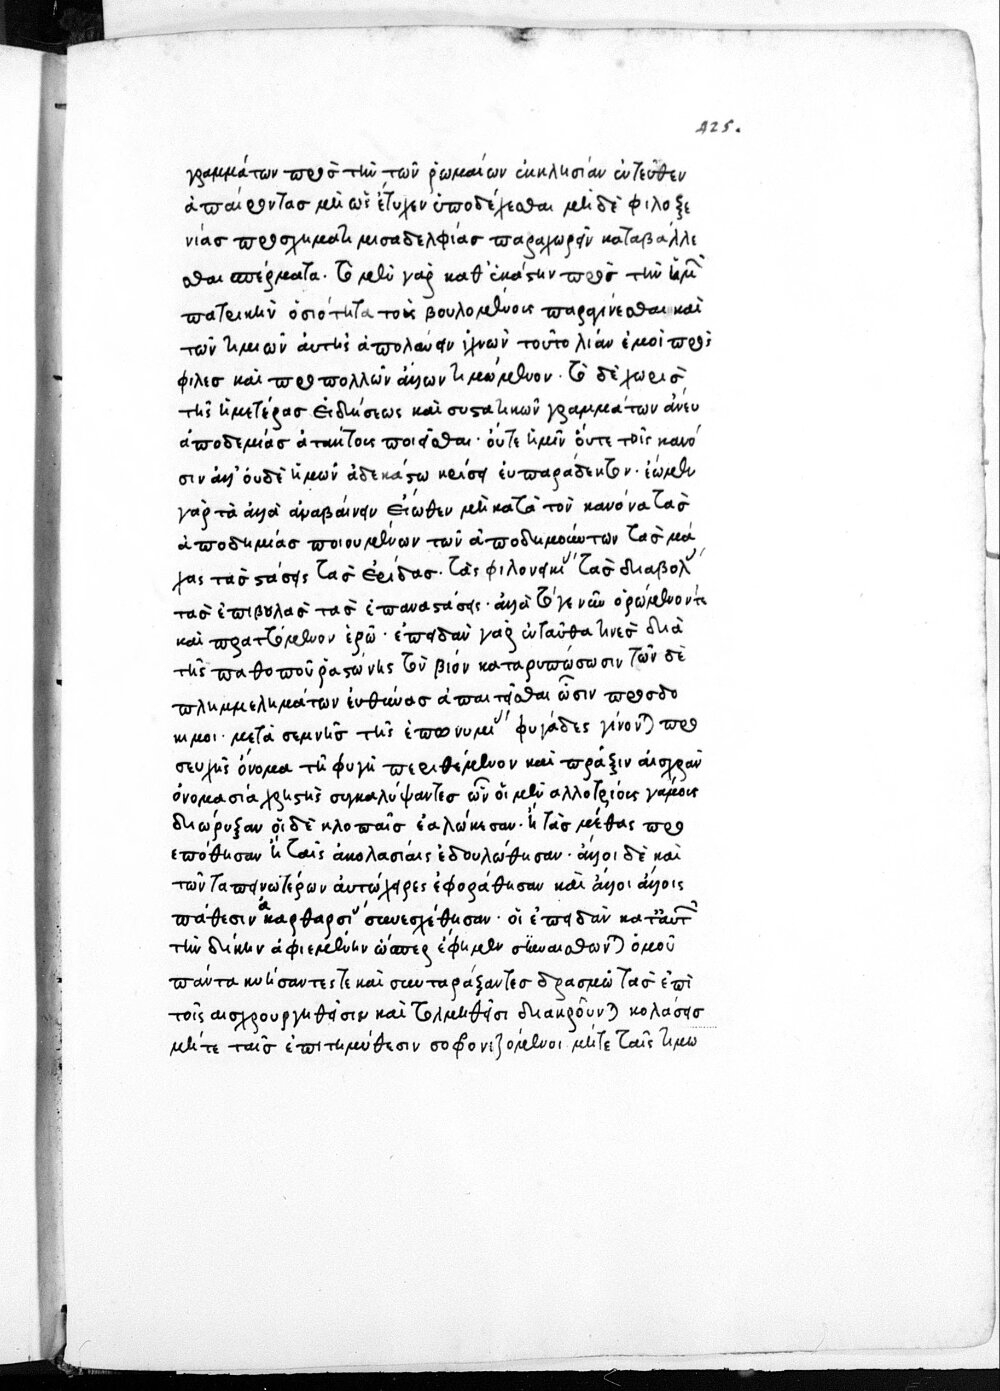 425.
γραμμάτων πρὸς τὴν τῶν ῥωμαίων ἐκκλησίαν ἐντεῦθεν
ἀπαίροντας μὴ ὡς ἔτυχεν ὑποδέχεσθαι μὴ δὲ φιλοξε
νίας προσχήματι μισαδελφίας παραχωρεῖν καταβάλλε
σθαι σπέρματα. τὸ μὲν γὰρ καθ' ἑκάστην πρὸς τὴν ὑμ
πατρικὴν ὁσιότητα τοὺς βουλομένους παραγίνεσθαι καὶ
τῶν τιμιῶν αὐτῆς ἀπολαύειν ἰχνῶν τοῦτο λίαν ἐμοὶ προσ
φιλες καὶ προ πολλῶν ἄλλων τιμώμενον. τὸ δὲ χωρὶς
τῆς ἡμετέρας εἰδήσεως καὶ συστατικῶν γραμμάτων ἄνευ
ἀποδεμίας ἀτακτους ποιεῖσθαι. οὔτε ἡμῖν οὔτε τοῖς κανό
σιν ἀλλ' οὐδὲ ὑμῶν ἀδεκάστω κρίσει εὐπαράδεκτον. ἐῶμεν
γὰρ τὰ ἄλλα ἀναβαίνειν εἴωθεν μὴ κατὰ τὸν κανόνα τὰς
ἀποδημίας ποιουμένων τῶν ἀποδημούντων τὰς μά
χας τὰς στάσεις τὰς ἔριδας. τὰς φιλονεικί τὰς διαβολ
τὰς ἐπιβουλὰς τὰς ἐπαναστάσεις. ἀλλὰ τό γε νῦν ὁρώμενόν τε
καὶ πραττόμενον ἐρῶ. ἐπειδὰν γὰρ ἐνταῦθα τινὲς διὰ
τῆς παθοποῦ ῥαστώνης τὸν βίον καταρυπώσωσιν τῶν δὲ
πλημμελημάτων εὐθύνας ἀπαιτεῖσθαι ὦσιν προσδο
κιμοι. μετὰ σεμνῆς τῆς ἐπωνυμί φυγάδες γίνονται προ
σευχῆς ὄνομα τῆ φυγῆ περιθέμενοι καὶ πρᾶξιν αἰσχρὰν
ὀνομασία χρηστῆς συγκαλύψαντες ὧν οἱ μὲν αλλοτρίους γάμους
διώρυξαν οἱ δὲ κλοπαῖς ἑαλώκεσαν. ἢ τὰς μέθας προ
επόθησαν ἢ ταῖς ἀκολασίαις ἐδουλώθησαν. ἄλλοι δὲ καὶ
τῶν ταπεινωτέρων αὐτόχειρες ἐφοράθησαν καὶ ἄλλοι ἄλλοις
πάθεσιν ἀκαρθαρσί συνεσχέθησαν. οἱ ἐπειδὰν κατ' αὐτ
τὴν δίκην ἀφιεμένην ὥσπερ ἔφημεν συναισθωνται ὁμοῦ
πάντα κυκήσαντές τε καὶ συνταράξαντες δρασμῷ τὰς ἐπὶ
τοῖς αισχρουργηθεῖσιν καὶ τολμηθεῖσι διακροῦνται κολάσεις
μήτε ταῖς ἐπιτιμύθεσιν σοφονιζόμενοι μήτε ταῖς τιμω